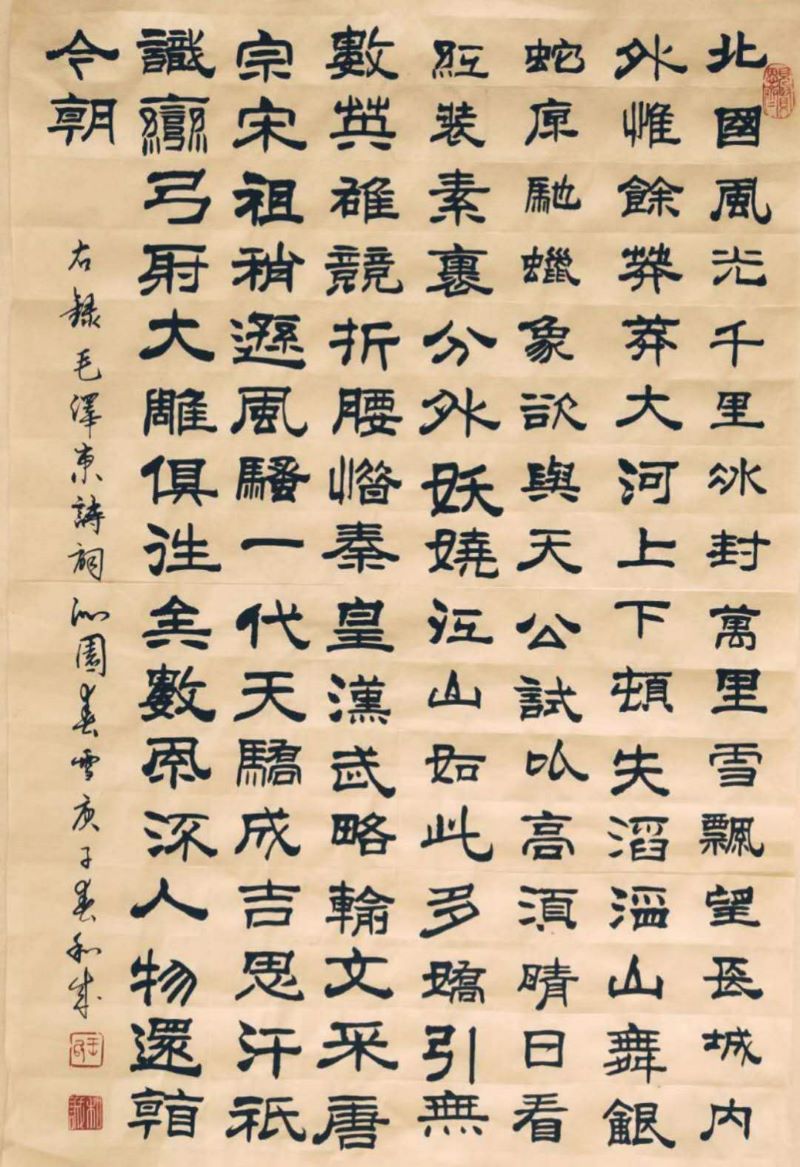 北國風光千里冰封萬里雪飄望長城內
外惟餘莽莽大河上下頓失滔滔山舞銀
蛇原馳蠟象欲與天公試以高須晴日看
紅裝素裹分外妖嬈江山如此多嬌引無
數英雄競折腰惜秦皇漢武略輸文采唐
宗宋祖稍遜風騷一代天驕成吉思汗祇
識彎弓射大雕俱往矣數風流人物還看
今朝
右錄毛澤東詩詞沁園春雪庚子春和成